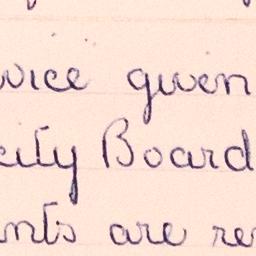 vice given
city Board
nts are re